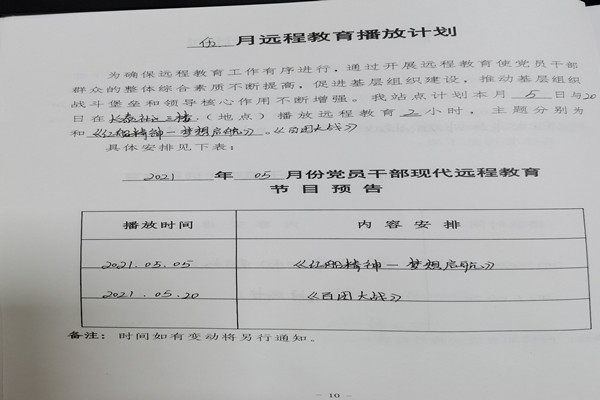 伍 月远程教育播放计划
为确保远程教育工作有序进行,通过开展远程教育使党员干部
群众的整体综合素质不断提高,促进基层组织建设,推动基层组织
战斗堡垒和领导核心作用不断增强。我站点计划本月 5 日与20
日在 社区三楼 (地点)播放远程教育 2 小时,主题分别为
和《红船精神—梦想启航》。《百团大战》
具体安排见下表:
2021 年 05 月份党员干部现代远程教育
节目预告
播放时间 内容安排
2021.05.05 《红船精神—梦想启航》
2021.05.20 《百团大战》
备注:时间如有变动将另行通知。
- 10 -